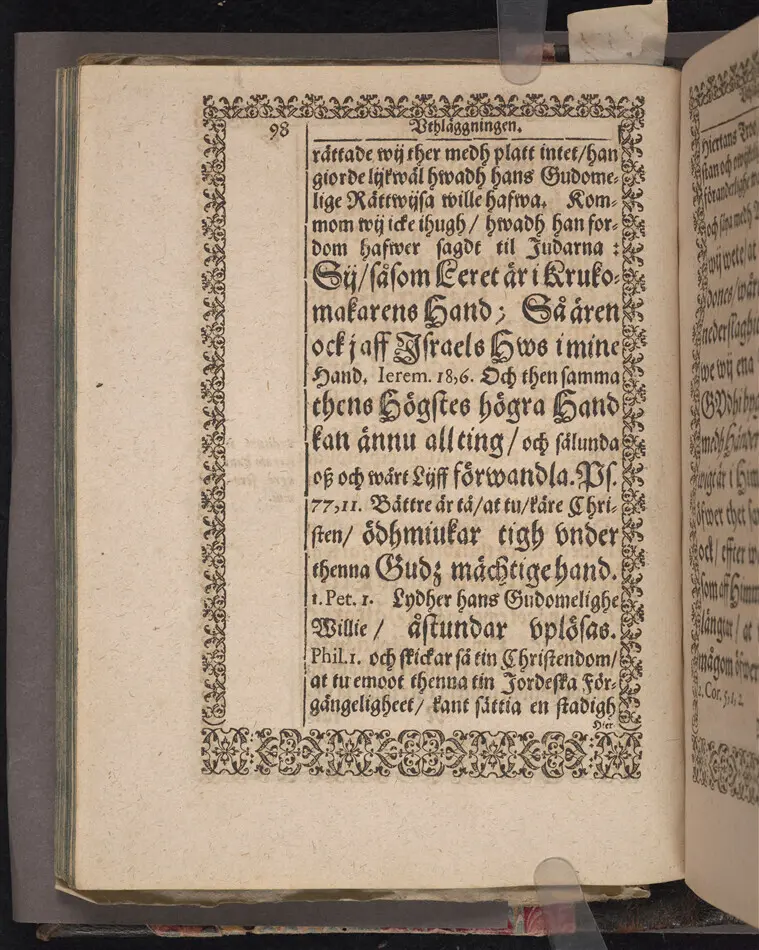 98
Vthläggningen.
rättade wij ther medh platt intet/han
giorde lijkwäl hwadh hans Gudome-
lige Rättwijsa wille hafwa. Kom-
mom wij icke ihugh / hwadh han for-
dom hafwer sagdt til Judarna :
Sij/såsom Leret är i Kruko-
makarens Hand; Så ären
ock j aff Israels Hws i mine
Hand. Ierem. 18,6. Och then samma
thens Högstes högra Hand
kan ännu all ting / och sålunda
oß och wårt Lijff förwandla. Ps.
77,11. Bättre är tå/at tu/käre Chri-
sten/ ödhmiukar tigh vnder
thenna Gudz mächtige hand.
1. Pet. 1. Lydher hans Gudomelighe
Willie / åstundar vplösas.
Phil.1. och skickar så tin Christendom/
at tu emoot thenna tin Jordeska För-
gängeligheet/ kant sättia en stadigh
Hier
Hiertans
stan och
föranderlighe
och sina medh
wij wete/ at
nederslaghi
we wij ena
GVdhi
medh Händer
öfwer thet
ock/ effter
som aff Himm
längtar / at
2. Cor. 5,1,2.